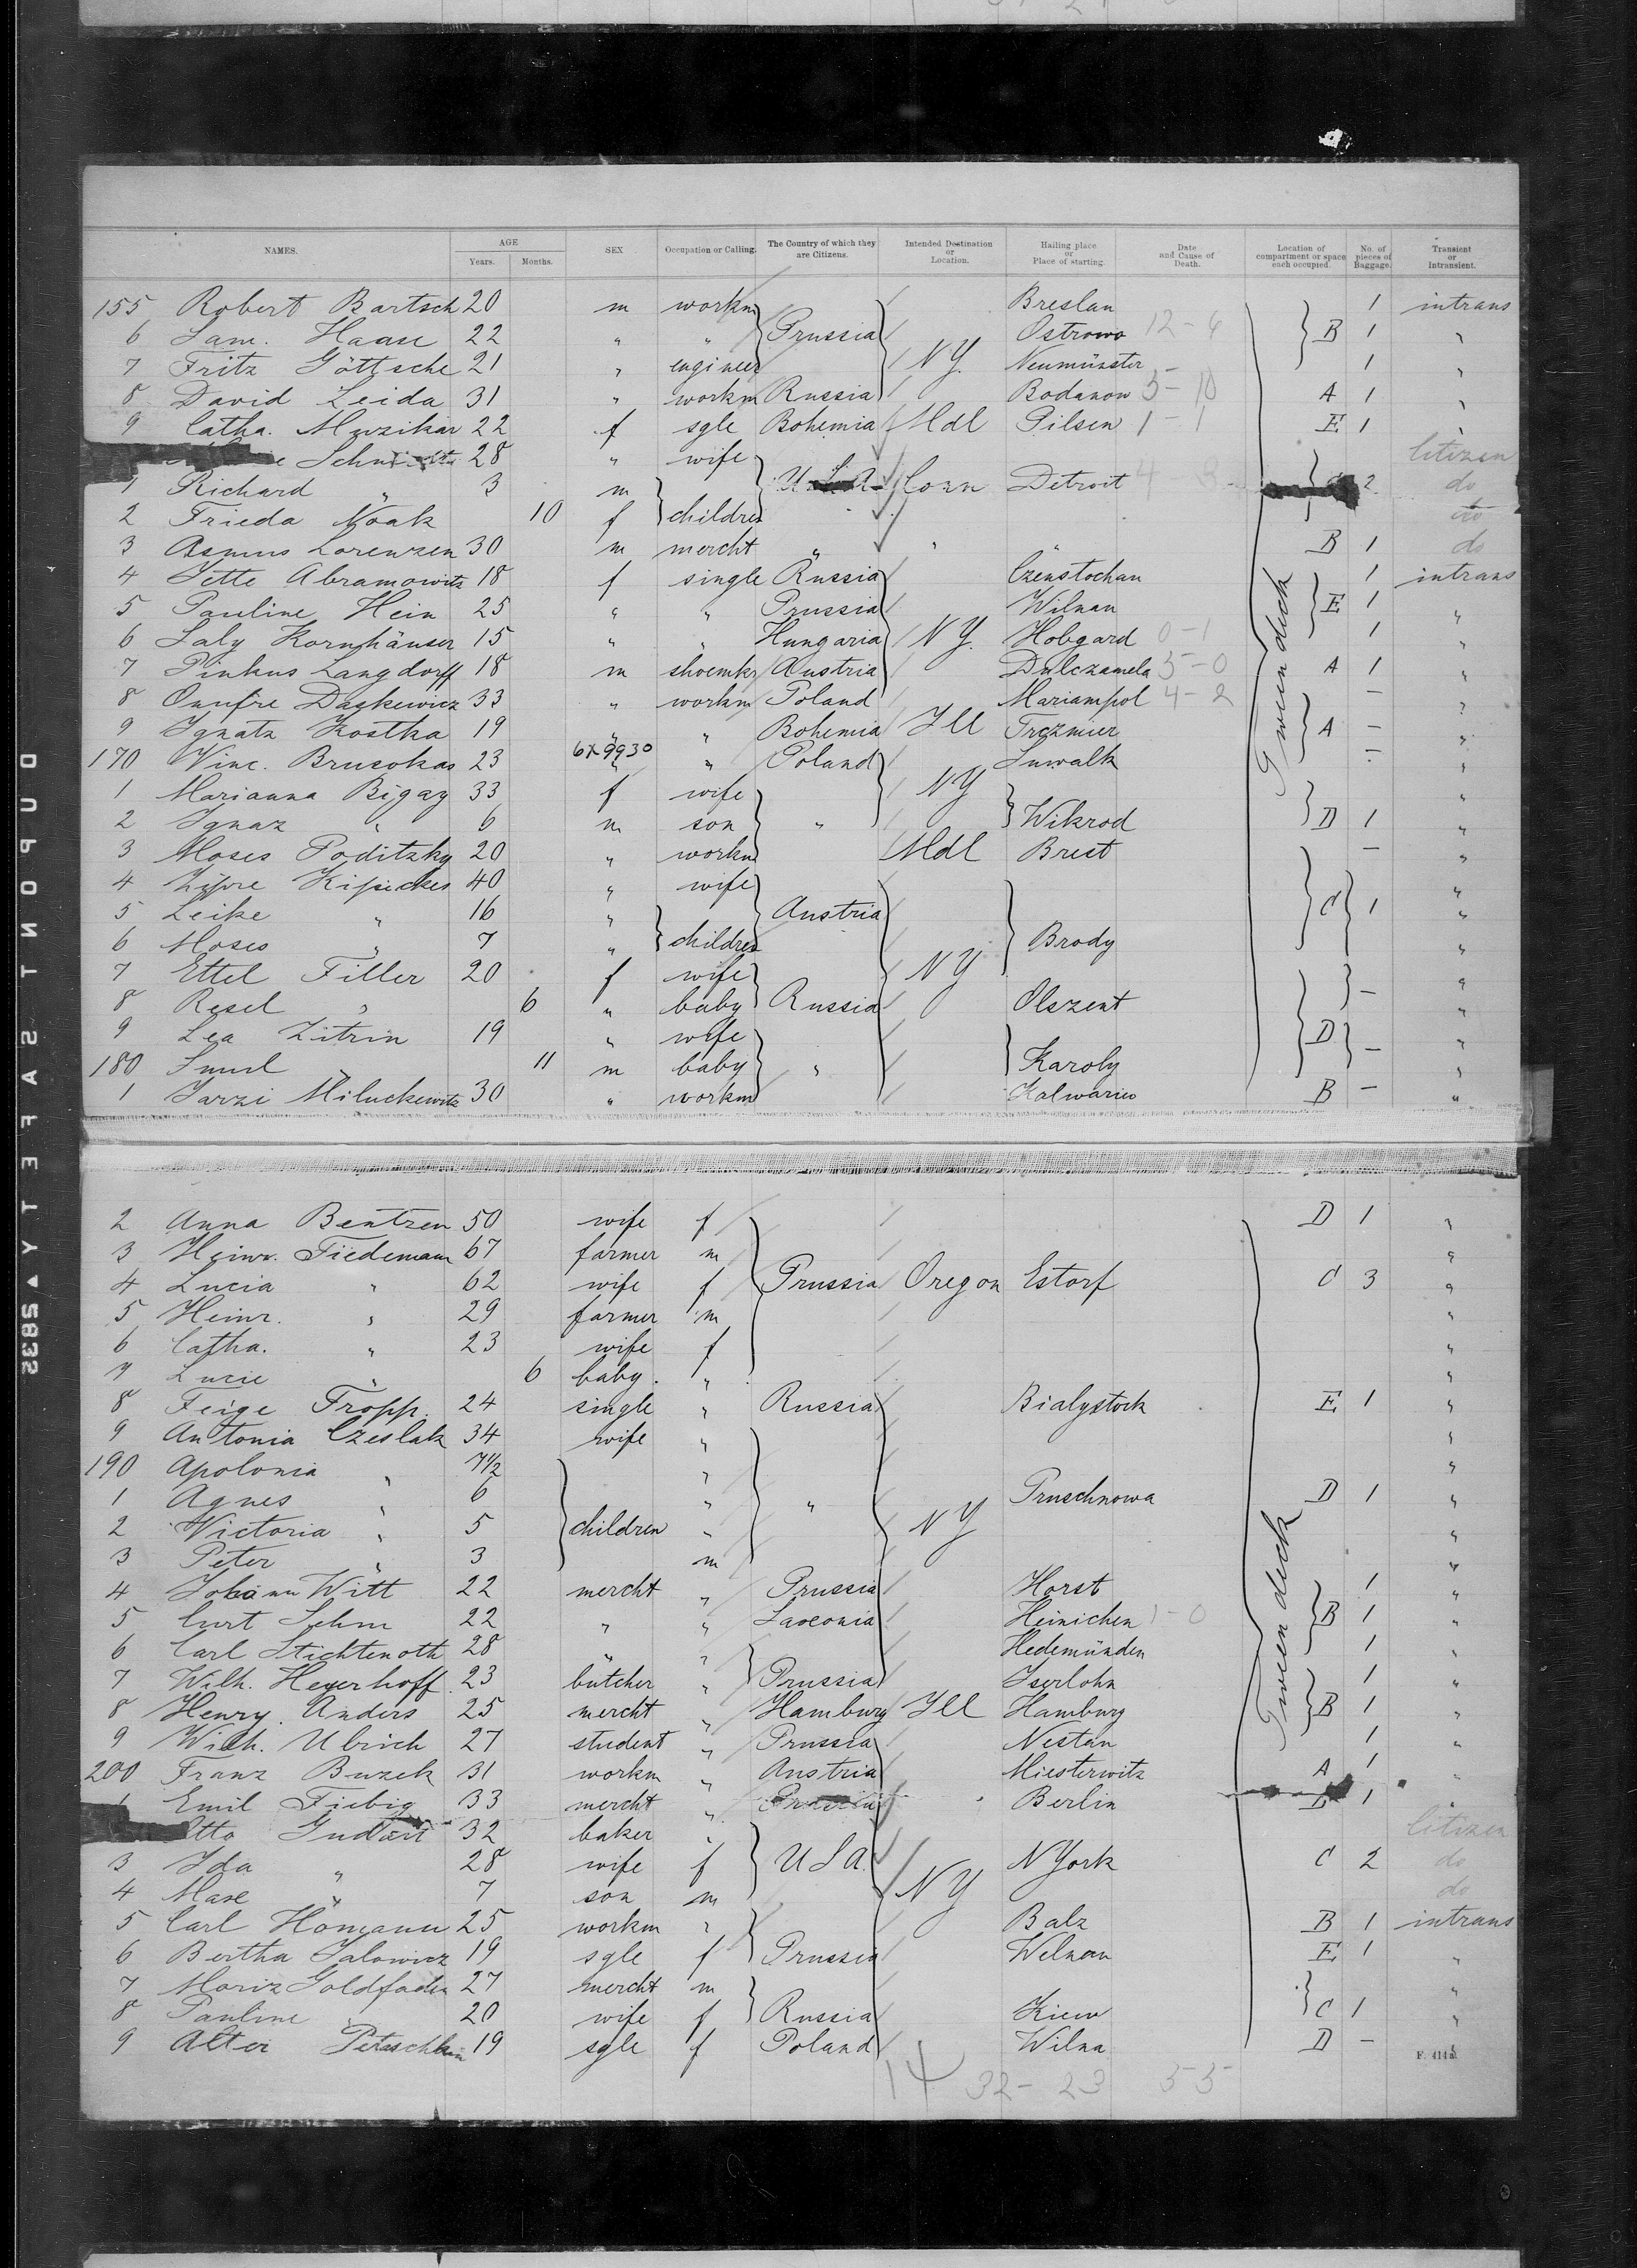 NAMES. AGE Years. Months. SEX Occupation or Calling. The Country of which they are Citizens. Intended Destination or Location. Hailing place or Place of starting. Date and Cause of Death. Location of compartment or space each occupied. No. of pieces of Baggage. Transient or Intransient.
155 Robert Bartsch 20 m workm Breslau 1 intrans
6 Sam. Haase 22 " " Prussia Ostrowo 12-6 B 1 "
7 Fritz Göttsche 21 " engineer NY. Neumünster 1 "
8 David Zeida 31 " workm Russia Bodanow 5-10 A 1 "
9 Catha. Muzikar 22 f sgle Bohemia Mdl Pilsen 1-1 E 1 "
28 " wife citizen
1 Richard " 3 m U.S.A. Conn Detroit 2 do
2 Frieda Noak 10 f children do
3 Asmus Lorenzen 30 m mercht " " " B 1 do
4 Jette Abramowitz 18 f single Russia Czenstochau 1 intrans
5 Pauline Hein 25 " " Prussia Wilnau E 1 "
6 Saly Kornhäuser 15 " " Hungaria NY. Hobgard 0-1 1 "
7 Pinkus Langdorff 18 m shoemkr Austria Dulczamela 5-0 A 1 "
8 Onufre Daskewicz 33 " workm Poland Mariampol 4-2 - "
9 Ignatz Kostka 19 " " Bohemia Ill Trezmier A - "
6X9930
170 Winc. Brusokas 23 " " Poland Suwalk - "
1 Marianna Bigay 33 f wife NY "
2 Ignaz " 6 m son " Wikrod D 1 "
3 Moses Poditzky 20 " workm Mdl Brest - "
4 Zipre Kipickes 40 " wife "
5 Leike " 16 " Austria C 1 "
6 Moses " 7 " children Brody "
7 Ettel Filler 20 f wife NY "
8 Resel " 6 " baby Russia Olszent - "
9 Lea Zitrin 19 " wife D "
180 Smul " 11 m baby " Karoly - "
1 Jarzi Miluckewitz 30 " workm Kalwario B - "
Tween deck
2 Anna Bentzen 50 wife f D 1 "
3 Heinr. Tiedemann 67 farmer m "
4 Lucia " 62 wife f Prussia Oregon Estorf C 3 "
5 Heinr. " 29 farmer m "
6 Catha. " 23 wife f "
7 Lucie " 6 baby. " "
8 Feige Tropp. 24 single " Russia Bialystock E 1 "
9 Antonia Czeslak 34 wife " "
190 Apolonia " 7 1/2 " "
1 Agnes " 6 " " Pruschnowa D 1 "
2 Victoria " 5 children " NY "
3 Peter " 3 m "
4 Johann Witt 22 mercht " Prussia Horst 1 "
5 Curt Sehm 22 " " Saxonia Heinichen 1-0 B 1 "
6 Carl Stichtenoth 28 " " Hedemünden 1 "
7 Wilh. Heyerhoff 23 butcher " Prussia Iserlohn 1 "
8 Henry. Anders 25 mercht " Hamburg Ill Hamburg B 1 "
9 Wilh. Ulrich 27 student " Prussia Nestau 1 "
200 Franz Buzek 31 workm " Austria Miesterwitz A 1 "
1 Emil Fiebig 33 mercht " Berlin 1 "
32 baker " citizen
3 Ida " 28 wife f USA. NYork C 2 do
4 Max " 7 son m NY do
5 Carl Homann 25 workm " Balz B 1 intrans
6 Bertha Jalowicz 19 sgle f Prussia Welnau E 1 "
7 Moriz Goldfaden 27 mercht m "
8 Pauline 20 wife f Russia Kiew C 1 "
9 Alter 19 sgle f Poland Wilna D - "
Tween deck
14 32-23 55
F. 414a
DUPONT SAFETY ▲ 5832